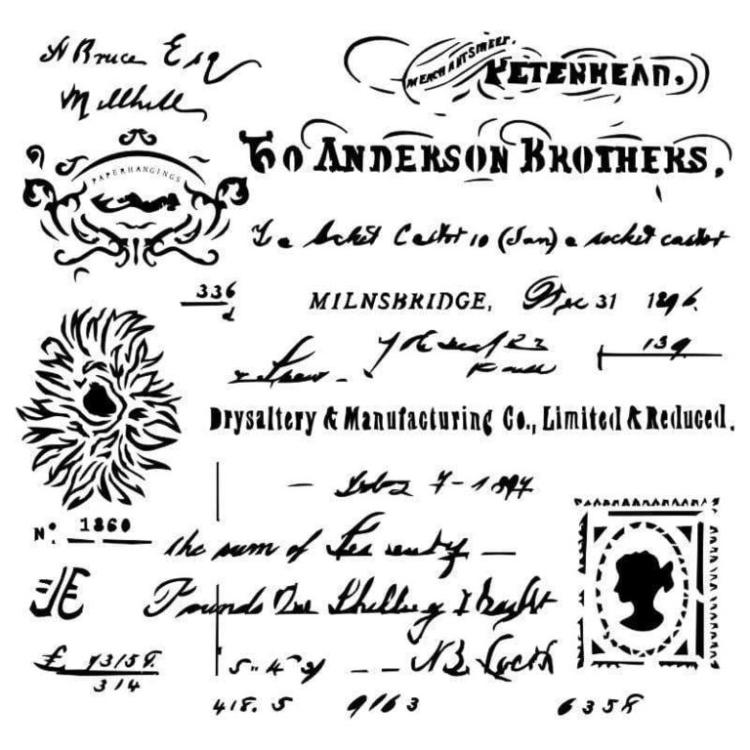 A Bruce Esq
Millhill
MERCHANT STREET.
PETERHEAD.
To ANDERSON BROTHERS.
PAPERHANGINGS
To a socket Castor 10 (Jan) a socket castor
336
d
MILNSBRIDGE, Dec 31 1896.
22
139
Drysaltery & Manufacturing Co., Limited & Reduced.
7 - 1897
No. 1860
the sum of
Pounds One Shilling & Eight
£ 73158.
314
5 " 4
418. 5 9163 6358